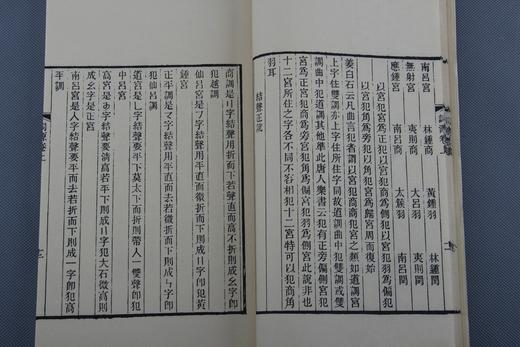 南呂宮 林鍾商 黃鍾羽 林鍾閏
無射宮 夷則商 大呂羽 夷則閏
應鍾宮 南呂商 太簇羽 南呂閏
以宮犯宮爲正犯以宮犯商爲側犯以宮犯羽爲偏犯
以宮犯角爲旁犯以角犯宮爲歸宮周而復始
姜白石云凡曲言犯者謂以宮犯商商犯宮之類如道調宮
上字住雙調亦上字住所住字同故道調曲中犯雙調或雙
調曲中犯道調其他準此唐人樂書云犯有正旁偏側宮犯
宮爲正犯宮犯商爲旁宮犯角爲偏宮犯羽爲側宮此說非也
十二宮所住之字各不同不容相犯十二宮特可以犯商角
羽耳
結聲正訛
商調是リ字結聲用折而下若聲直而高不折則成幺字卽
犯越調
仙呂宮是フ字結聲用平直而微折而下則成リ字卽犯黃
鍾宮
正平調是マ字結聲用平直而去若微折而下則成ㄣ字卽
犯仙呂調
道宮是ㄥ字結聲要平下莫太下而折則帶人一雙聲卽犯
中呂宮
高宮是字結聲要清高若平下則成リ犯大石微高則
成幺字是正宮
南呂宮是人字結聲要平而去若折而下則成一字卽犯高
平調